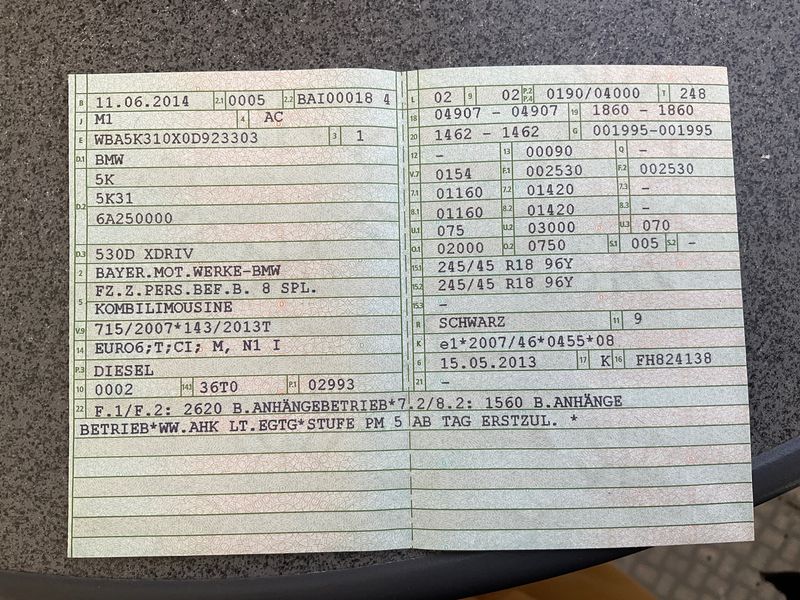 B 11.06.2014 2.1 0005 2.2 BAI00018 4
J M1 4 AC
E WBA5K310X0D923303 3 1
D.1 BMW
5K
D.2 5K31
6A250000
D.3 530D XDRIV
2 BAYER.MOT.WERKE-BMW
5 FZ.Z.PERS.BEF.B. 8 SPL.
KOMBILIMOUSINE
V.9 715/2007*143/2013T
14 EURO6;T;CI; M, N1 I
P.3 DIESEL
10 0002 14.1 36T0 P.1 02993
L 02 9 02 P.2 P.4 0190/04000 T 248
18 04907 - 04907 19 1860 - 1860
20 1462 - 1462 G 001995-001995
12 - 13 00090 Q -
V.7 0154 F.1 002530 F.2 002530
7.1 01160 7.2 01420 7.3 -
8.1 01160 8.2 01420 8.3 -
U.1 075 U.2 03000 U.3 070
O.1 02000 O.2 0750 S.1 005 S.2 -
15.1 245/45 R18 96Y
15.2 245/45 R18 96Y
15.3 -
R SCHWARZ 11 9
K e1*2007/46*0455*08
6 15.05.2013 17 K 16 FH824138
21 -
22 F.1/F.2: 2620 B.ANHÄNGEBETRIEB*7.2/8.2: 1560 B.ANHÄNGE
BETRIEB*WW.AHK LT.EGTG*STUFE PM 5 AB TAG ERSTZUL. *